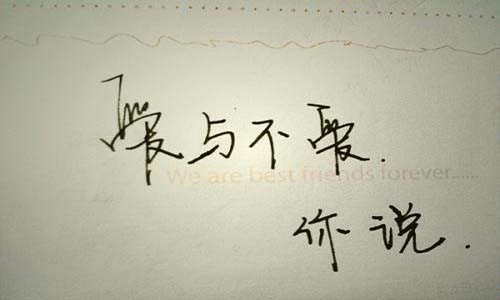 爱与不爱.
We are best friends forever......
你说.